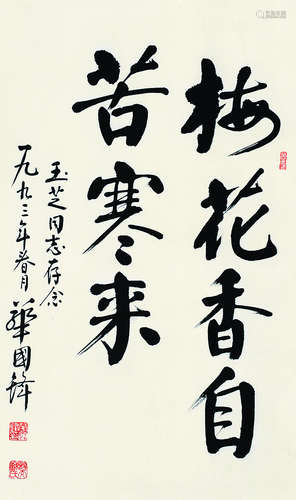 梅花香自
苦寒来
玉芝同志存念
一九九三年春月
華國鋒